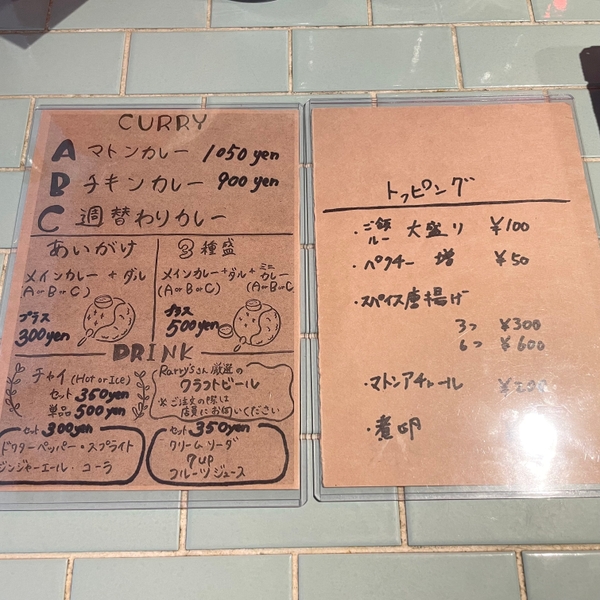 CURRY
A マトンカレー 1050 yen
B チキンカレー 900 yen
C 週替わりカレー
あいがけ
メインカレー + ダル
(A or B or C)
プラス
300yen
3種盛
メインカレー+ダル+ミニカレー
(A or B or C) (A or B or C)
プラス
500yen
DRINK
チャイ (Hot or Ice)
セット 350yen
単品 500yen
Rarry'sさん厳選の
クラフトビール
※ご注文の際は
店員にお伺いください
セット 300yen
ドクターペッパー・スプライト
ジンジャーエール・コーラ
セット 350yen
クリームソーダ
7up
フルーツジュース
トッピング
・ご飯 ルー 大盛り ¥100
・パクチー 増 ¥50
・スパイス唐揚げ
3つ ¥300
6つ ¥600
・マトンアチャール
・煮卵